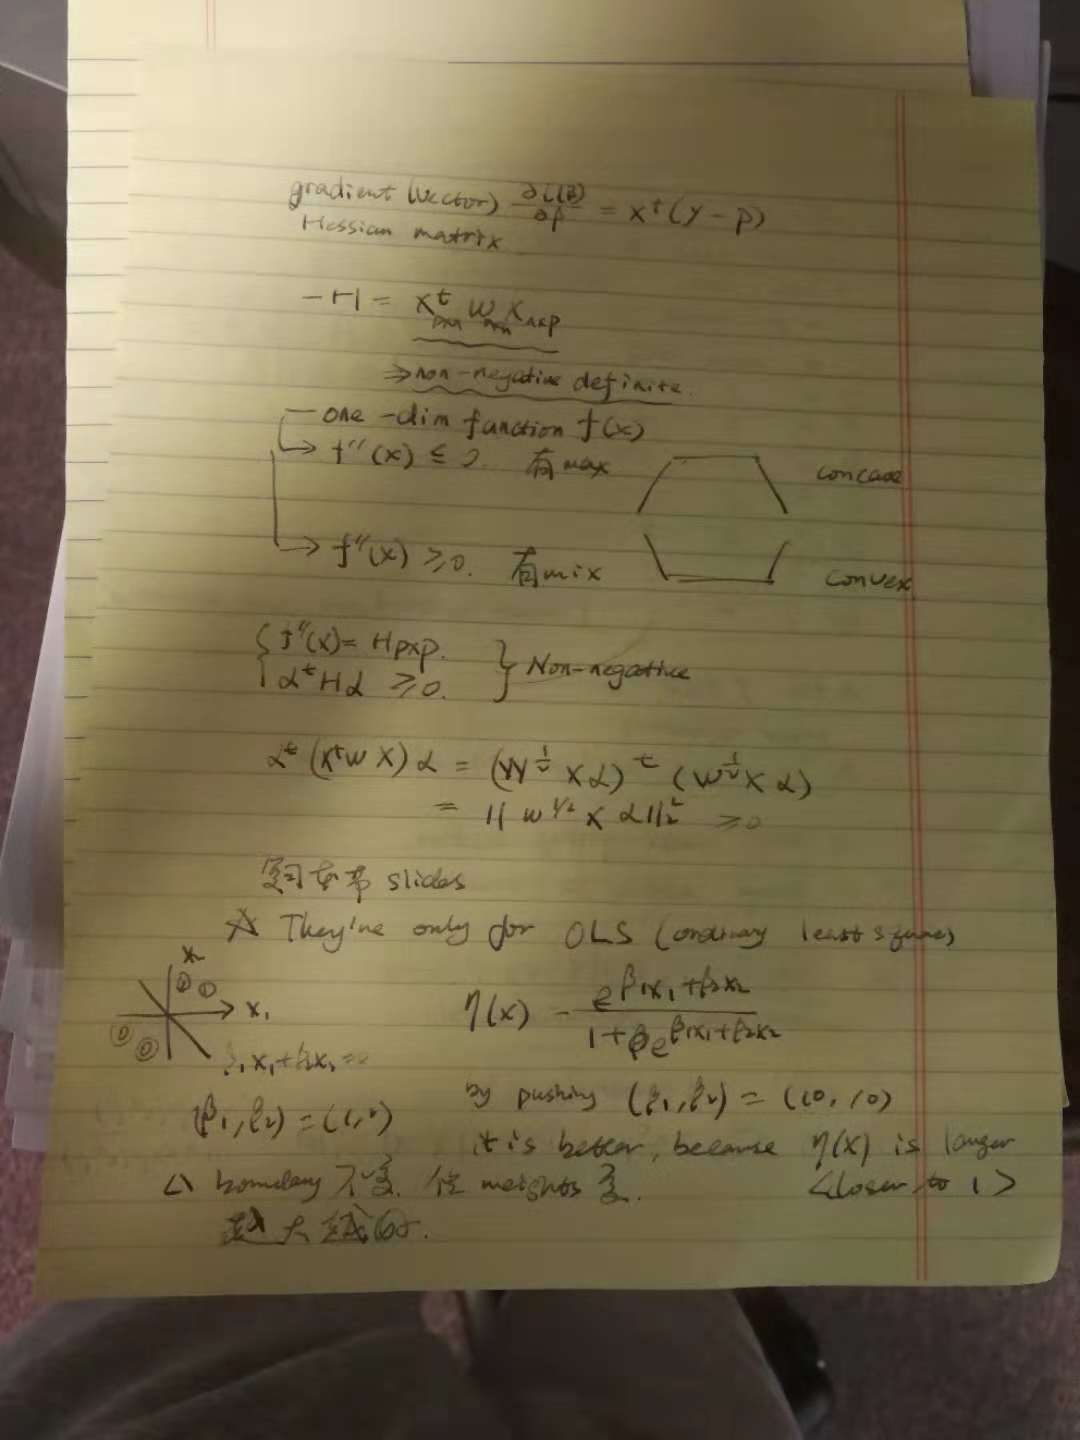 gradient (vector) ∂l(β)/∂β = x^t (y - p)
Hessian matrix
-H = X^t_{pxn} W_{nxn} X_{nxp}
⇒ non-negative definite.
- one-dim function f(x)
→ f''(x) ≤ 0. 有max concave
→ f''(x) ≥ 0. 有mix convex
{ f''(x) = H_{pxp}.
α^t H α ≥ 0. } Non-negative
α^t (X^t W X) α = (W^{1/2} X α)^t (W^{1/2} X α)
= || W^{1/2} X α ||_2^2 ≥ 0
复习 slides
☆ They're only for OLS (ordinary least square)
x_2
① ①
x_1
⓪ ⓪
β_1x_1 + β_2x_2 = 0
η(x) = e^{β_1x_1+β_2x_2} / 1+e^{β_1x_1+β_2x_2}
(β_1, β_2) = (1, 1)
by pushing (β_1, β_2) = (10, 10)
it is better, because η(x) is larger
<closer to 1>
boundary 不变. 但 weights 变.
越大越